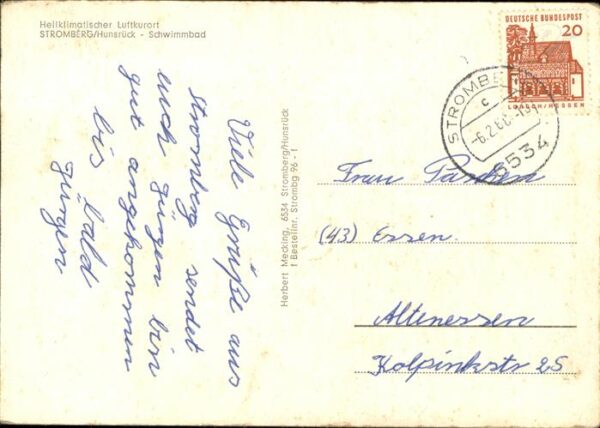 Heilklimatischer Luftkurort
STROMBERG/Hunsrück - Schwimmbad
Viele Grüße aus
Stromberg sendet
euch Jürgen bin
gut angekommen
bis bald
Jürgen
Herbert Mecking, 6534 Stromberg/Hunsrück
1 Bestellnr. Strombg 96 - 1
DEUTSCHE BUNDESPOST
20
LORSCH/HESSEN
STROMBE
c
-6.2.68.-15
6534
Frau
(43) Essen.
Altenessen
Kolpinkstr 25